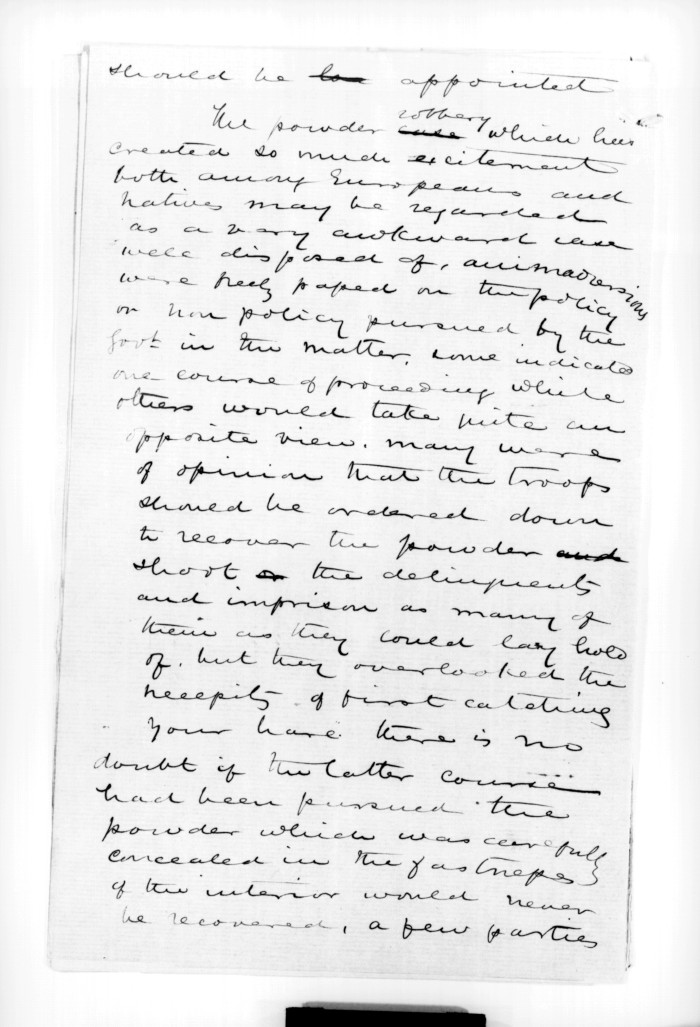 should be appointed
The powder robbery which has
created so much excitement
both among Europeans and
natives may be regarded
as a very awkward case
well disposed of, animadversions
were freely passed on the policy
or non policy pursued by the
Govt. in the matter. some indicated
one course of proceeding while
others would take quite an
opposite view. many were
of opinion that the troops
should be ordered down
to recover the powder and
shoot the delinquents
and imprison as many of
them as they could lay hold
of. but they overlooked the
necessity of first catching
your hare there is no
doubt if the latter course
had been pursued the
powder which was carefully
concealed in the fastnesses
of the interior would never
be recovered, a few parties